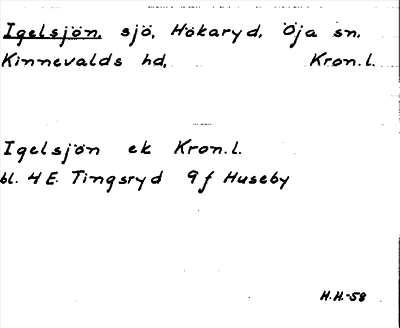 Igelsjön, sjö, Hökaryd, Öja sn,
Kinnevalds hd, Kron.l.
Igelsjön ek Kron.l.
bl. 4E. Tingsryd 9f Huseby
H.H.-58